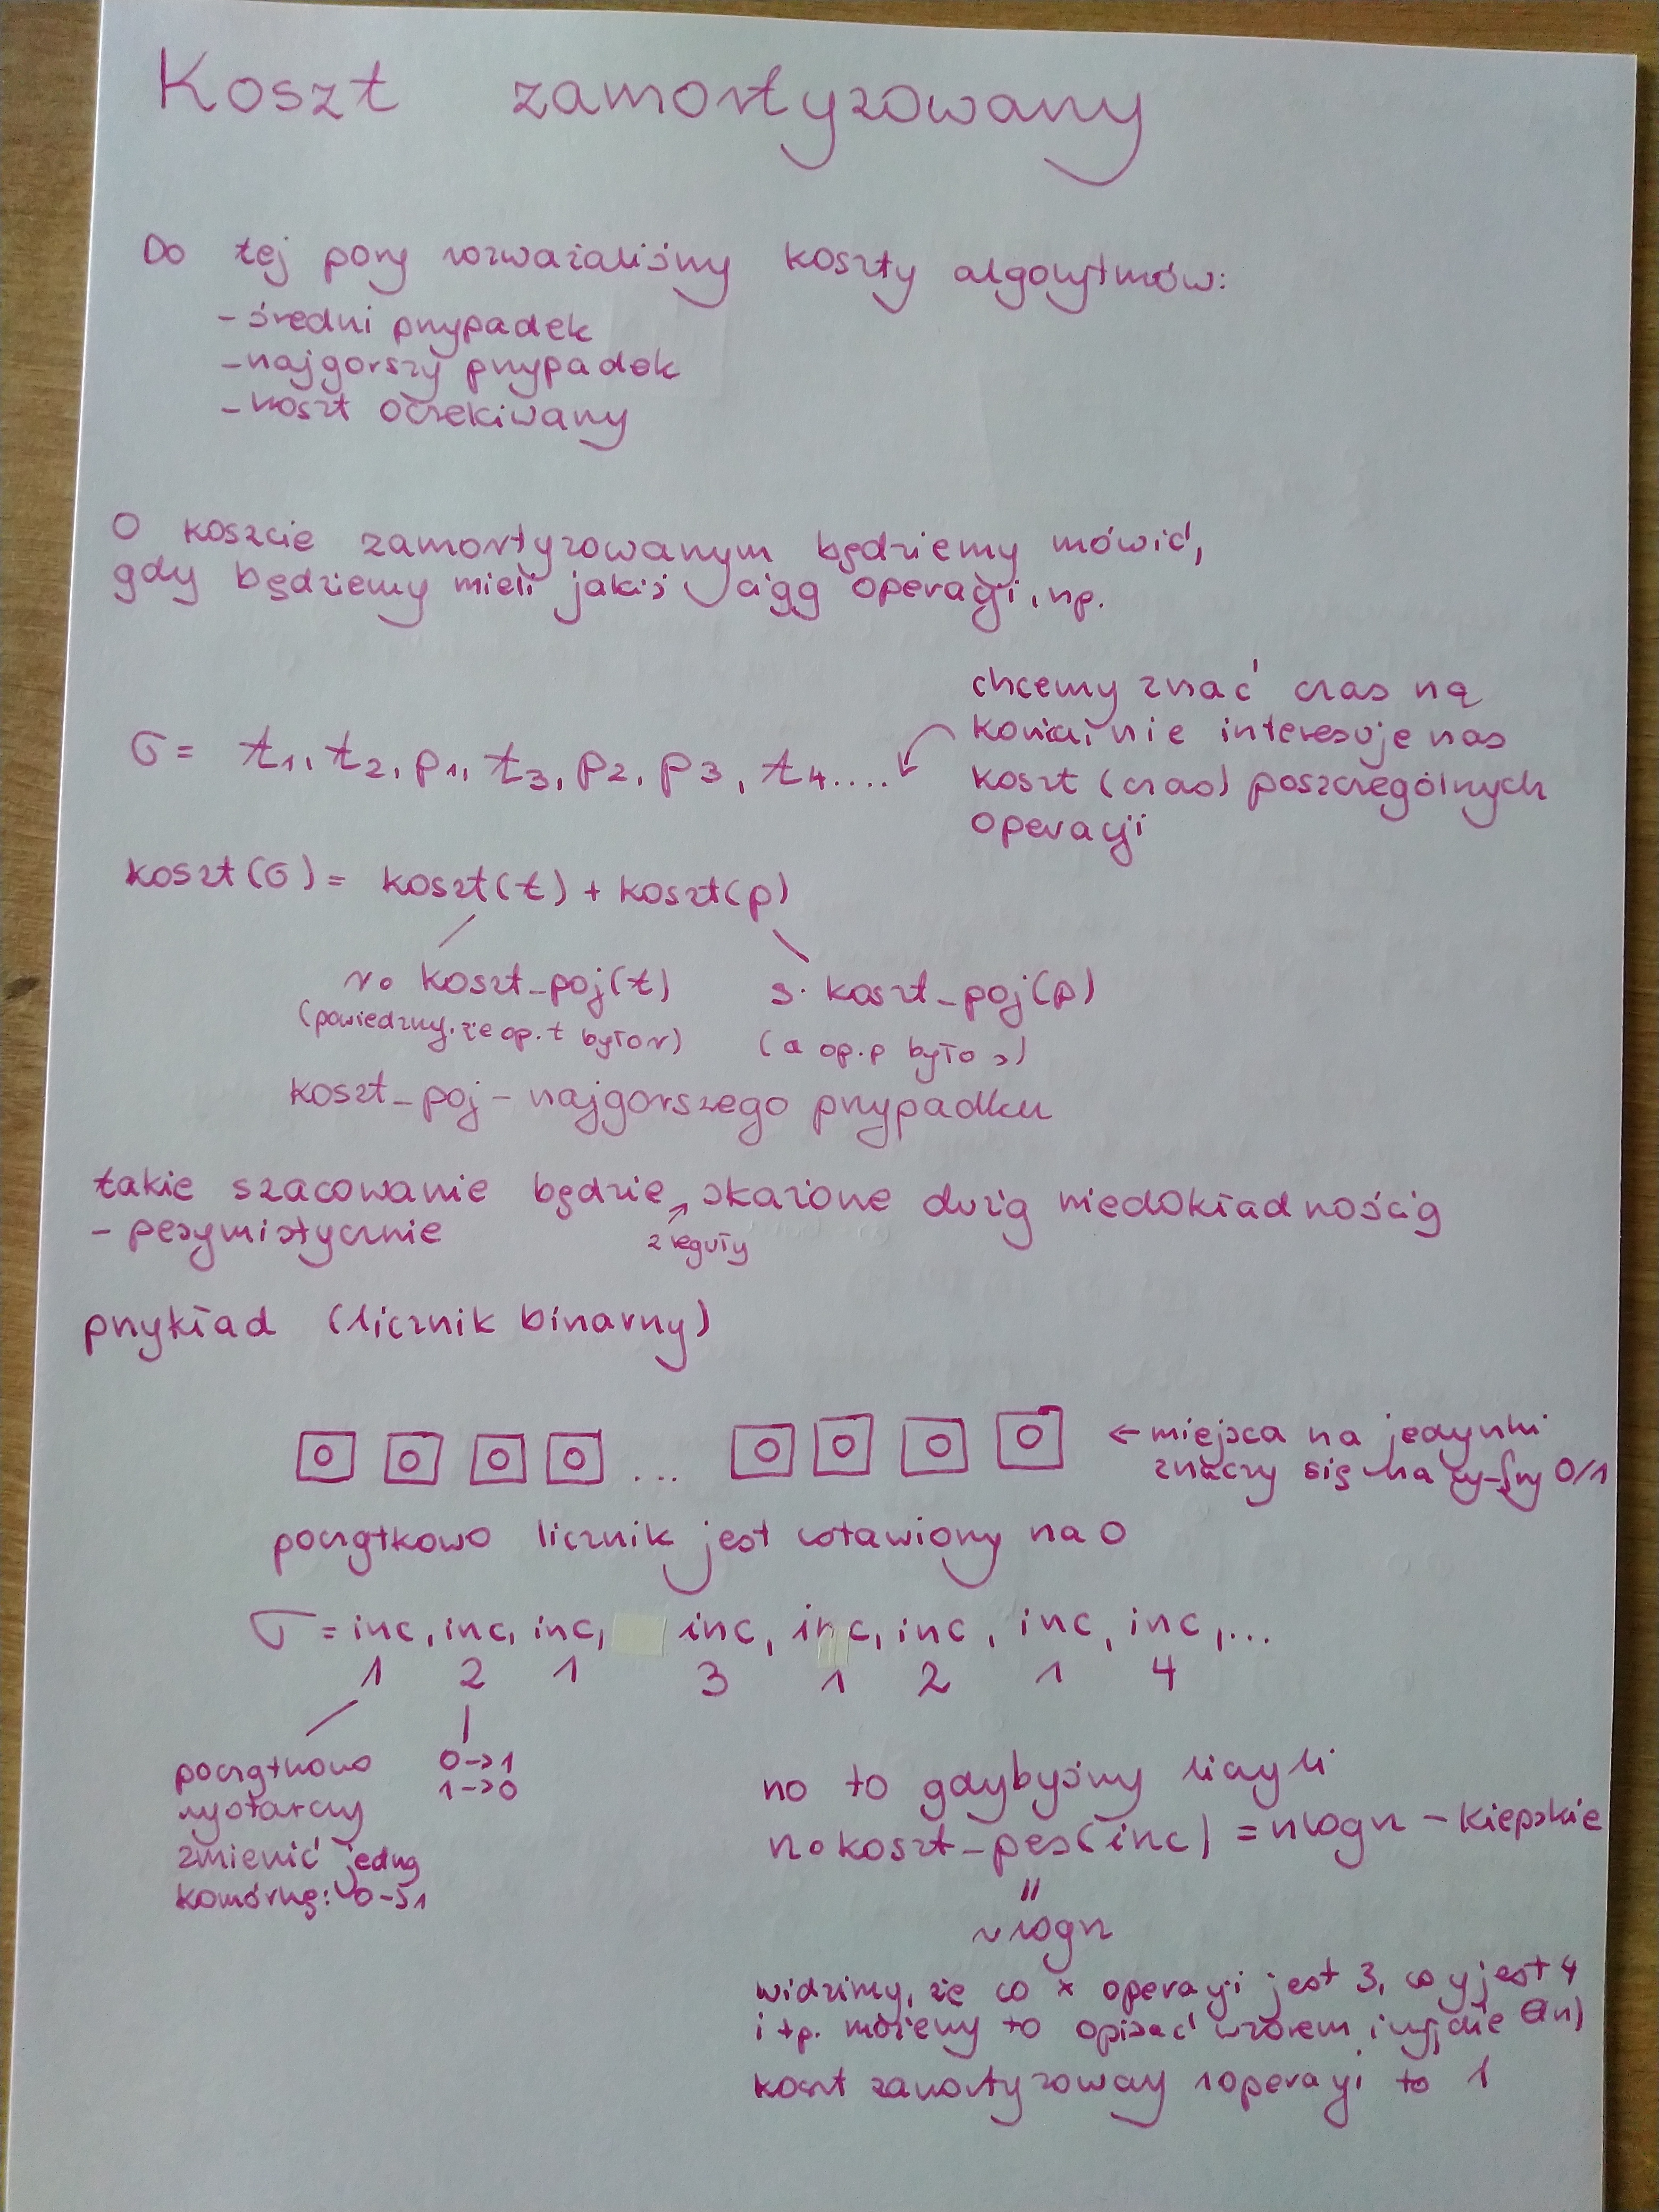 Koszt zamortyzowany
Do tej pory rozważaliśmy koszty algorytmów:
- średni przypadek
- najgorszy przypadek
- koszt oczekiwany
O koszcie zamortyzowanym będziemy mówić,
gdy będziemy mieli jakiś ciąg operacji, np.
σ = t1, t2, p1, t3, p2, p3, t4....
chcemy znać czas na
końcu, nie interesuje nas
koszt (czas) poszczególnych
operacji
koszt(σ) = koszt(t) + koszt(p)
r∘ koszt_poj(t)
(powiedzmy, że op. t było r)
s· koszt_poj(p)
(a op. p było s)
koszt_poj - najgorszego przypadku
takie szacowanie będzie skażone dużą niedokładnością
z reguły
- pesymistycznie
przykład (licznik binarny)
0 0 0 0 ... 0 0 0 0
← miejsca na jedynki
znaczy się na cyfry 0/1
początkowo licznik jest ustawiony na 0
σ = inc, inc, inc, inc, inc, inc, inc, inc,...
1 2 1 3 1 2 1 4
początkowo
wystarczy
zmienić jedną
komórkę: 0->1
0->1
1->0
no to gdybyśmy liczyli
n∘koszt_pes(inc) = nlogn - kiepskie
=
~logn
widzimy, że co x operacji jest 3, co y jest 4
itp. możemy to opisać wzorem i wyjdzie Θ(n)
koszt zamortyzowany 1 operacji to 1